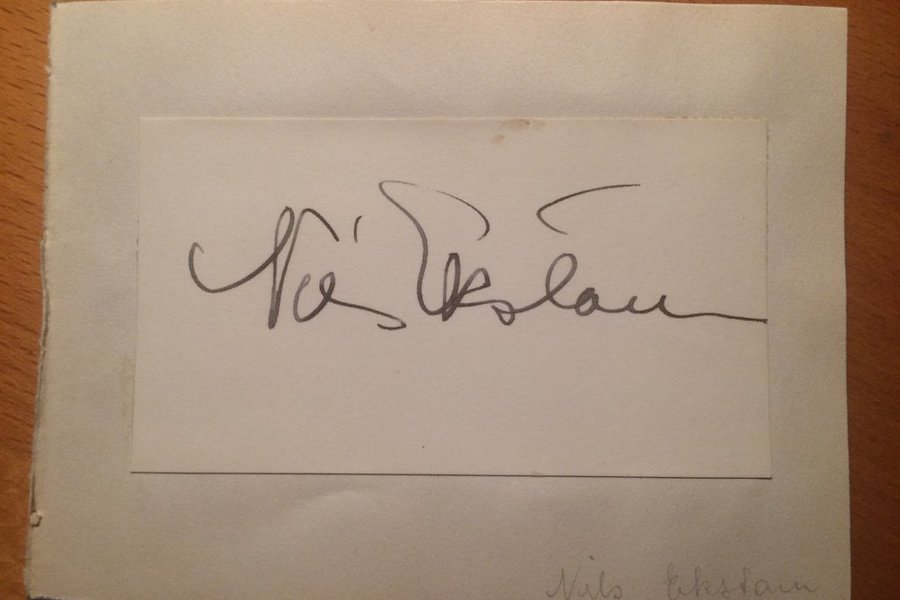 Nils Ekstam
Nils Ekstam